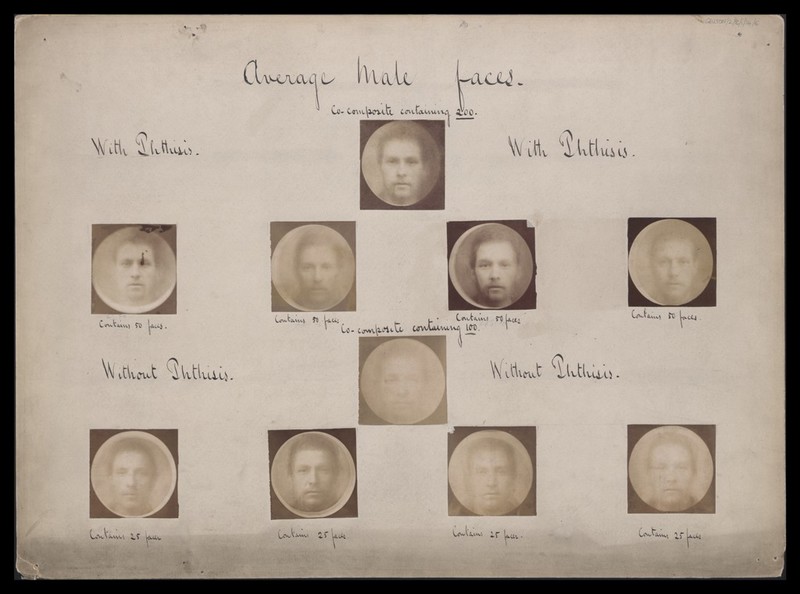 Average Male faces.
Co-composite containing 200.
With Phthisis.
With Phthisis.
Contains 50 faces.
Contains 50 faces
Contains 50 faces
Contains 50 faces.
Co-composite containing 100.
Without Phthisis.
Without Phthisis.
Contains 25 faces
Contains 25 faces
Contains 25 faces.
Contains 25 faces